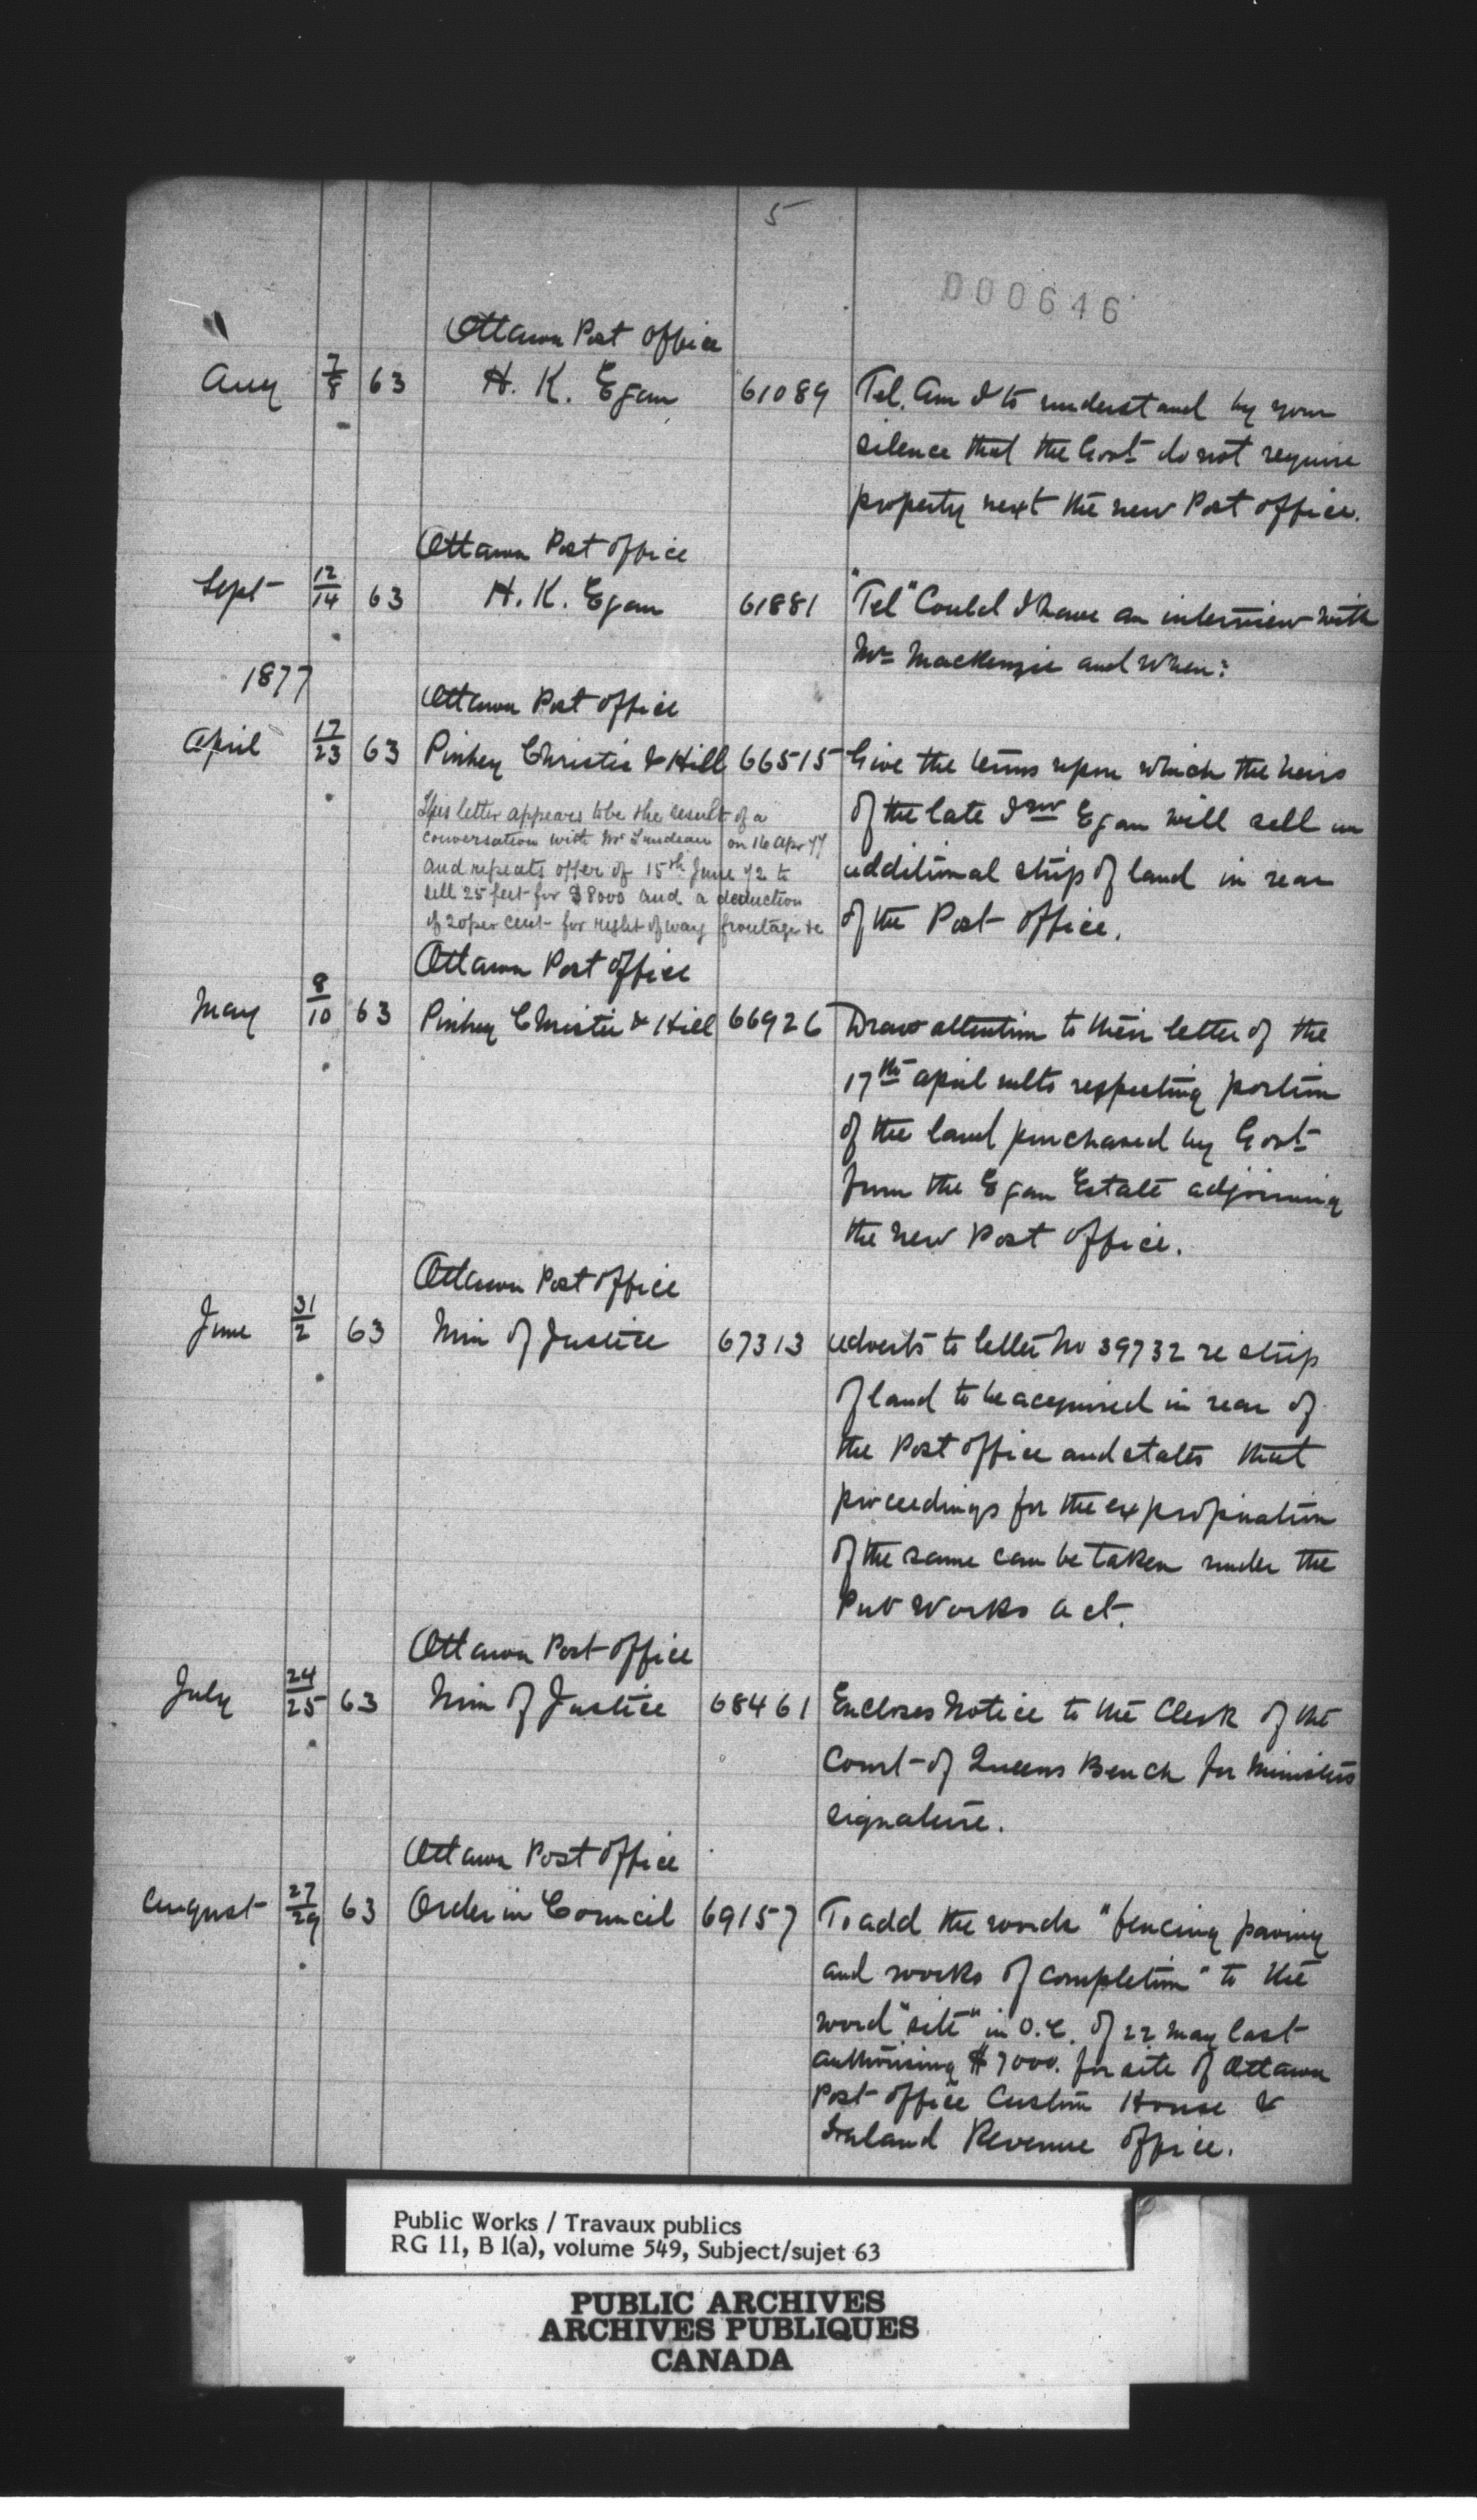 5
000646
Ottawa Post Office
Aug 7/8 63 H. K. Egan 61089 Tel. Am I to understand by your
silence that the Govt do not require
property next the new Post Office.
Ottawa Post Office
Sept 12/14 63 H. K. Egan 61881 "Tel" Could I have an interview with
Mr Mackenzie and when?
1877
Ottawa Post Office
April 17/23 63 Pinhey Christie & Hill 66515 Give the terms upon which the heirs
of the late Egan will sell an
additional strip of land in rear
of the Post Office.
This letter appears to be the result of a
conversation with Mr on 16 Apr 77
and repeats offer of 15th June 72 to
sell 25 feet for $8000 and a deduction
of 20 per cent for right of way frontage &c
Ottawa Post Office
May 8/10 63 Pinhey Christie & Hill 66926 Draw attention to their letter of the
17th April ulto respecting portion
of the land purchased by Govt
from the Egan Estate adjoining
the new Post Office.
Ottawa Post Office
June 31/2 63 Min of Justice 67313 adverts to letter No 39732 re strip
of land to be acquired in rear of
the Post Office and states that
proceedings for the expropriation
of the same can be taken under the
Pub Works Act.
Ottawa Post Office
July 24/25 63 Min of Justice 68461 Encloses Notice to the Clerk of the
Court of Queens Bench for Ministers
signature.
Ottawa Post Office
August 27/29 63 Order in Council 69157 To add the words "fencing paving
and works of completion" to the
word "site" in O.C. of 22 May last
authorising $7000. for site of Ottawa
Post Office Custom House &
Inland Revenue Office.
Public Works / Travaux publics
RG 11, B 1(a), volume 549, Subject/sujet 63
PUBLIC ARCHIVES
ARCHIVES PUBLIQUES
CANADA